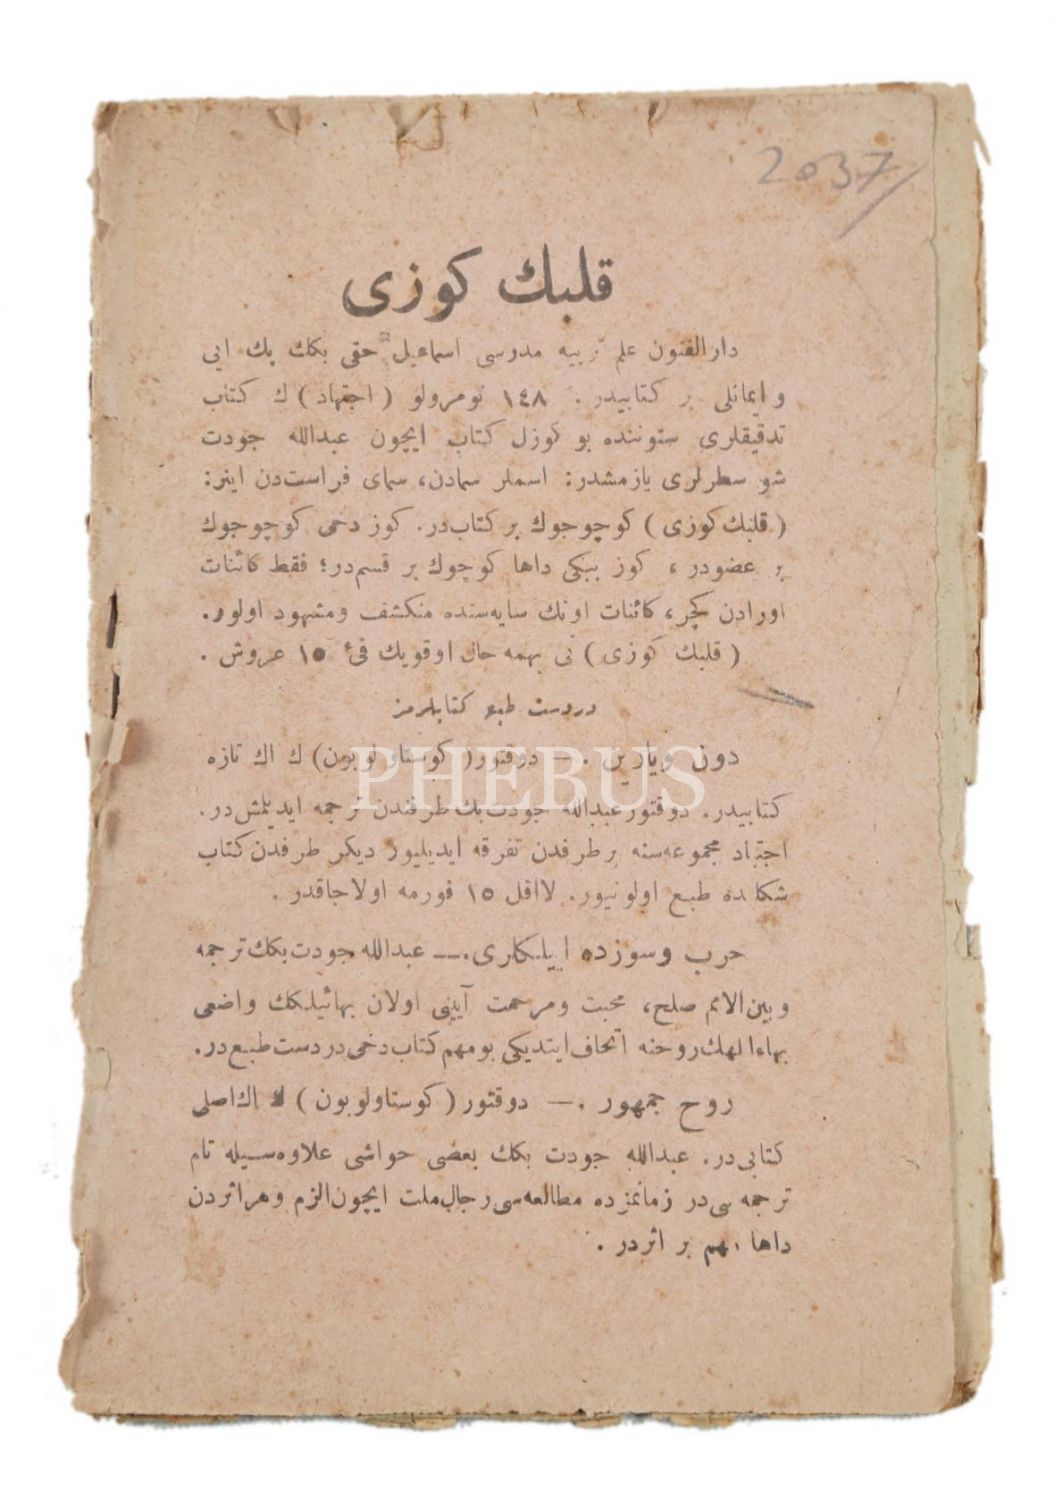 2037
قلبك كوزی
دار الفنون علم تربیه مدرسی اسماعیل حقی بكك پك ایی
و ایمانلی بر كتابیدر. ١٤٨ نومرولو (اجتهاد) ك كتاب
تدقیقلری ستوننده بو كوزل كتاب ایچون عبدالله جودت
شو سطرلری یازمشدر: اسملر سمادن، سمای فراست‌دن اینر:
(قلبك كوزی) كوچوجوك بر كتاب‌در. كوز دخی كوچوجوك
بر عضودر، كوز ببكی داها كوچوك بر قسم‌در؛ فقط كائنات
اورادن كچر، كائنات اونك سایه‌سنده منكشف ومشهود اولور.
(قلبك كوزی) نی بهمه حال اوقویك فی ١٥ غروش.
دردست طبع كتابلرمز
دون ویارین. — دوقتور (كوستاولوبون) ك اك تازه
كتابیدر. دوقتور عبدالله جودت بك طرفندن ترجمه ایدیلمش‌در.
اجتهاد مجموعه‌سنه بر طرفدن تفرقه ایدیلیور دیكر طرفدن كتاب
شكلنده طبع اولونیور. لااقل ١٥ فورمه اولاجاقدر.
حرب وسوزده اییلكلری. — عبدالله جودت بكك ترجمه
وبین‌الامم صلح، محبت ومرحمت آیینی اولان بهائیلكك واضعی
بهاءالهك روحنه اتحاف ایتدیكی بو مهم كتاب دخی دردست طبع‌در.
روح جمهور. — دوقتور (كوستاولوبون) ك اك اصلی
كتابی‌در. عبدالله جودت بكك بعضی حواشی علاوه‌سیله تام
ترجمه‌سی‌در زمانمزده مطالعه‌سی رجال ملت ایچون الزم وهر اثردن
داها مهم بر اثردر.
PHEBUS